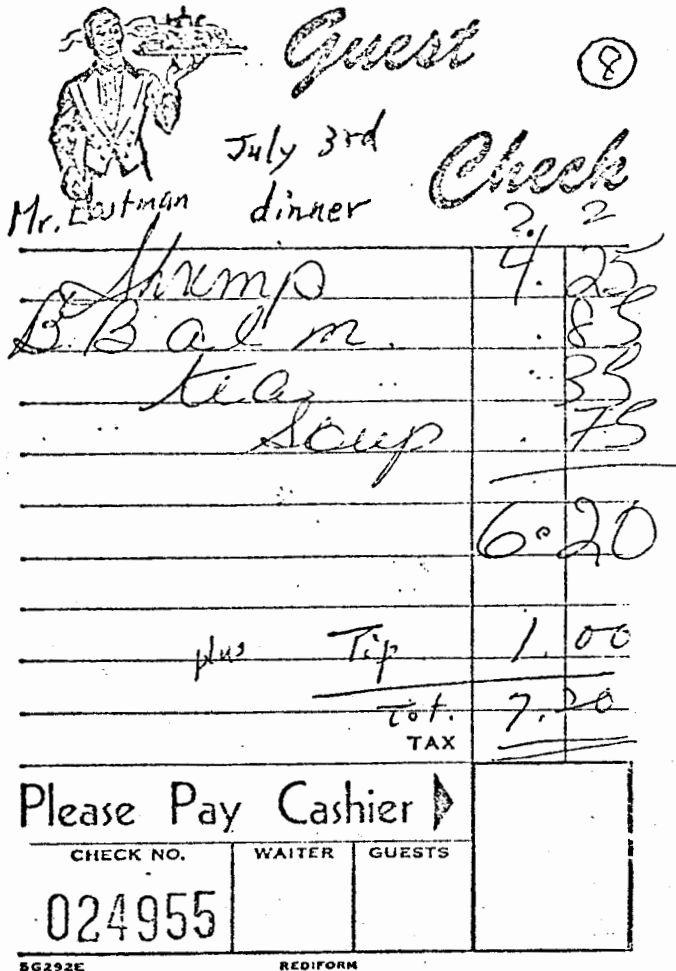 Guest
8
July 3rd
Check
Mr. Eastman dinner
2. 2
Shrimp 4.25
B. B al m. .85
tea .35
Soup .75
6.20
plus Tip 1.00
Tot. 7.20
TAX
Please Pay Cashier
CHECK NO. WAITER GUESTS
024955
5G292E REDIFORM